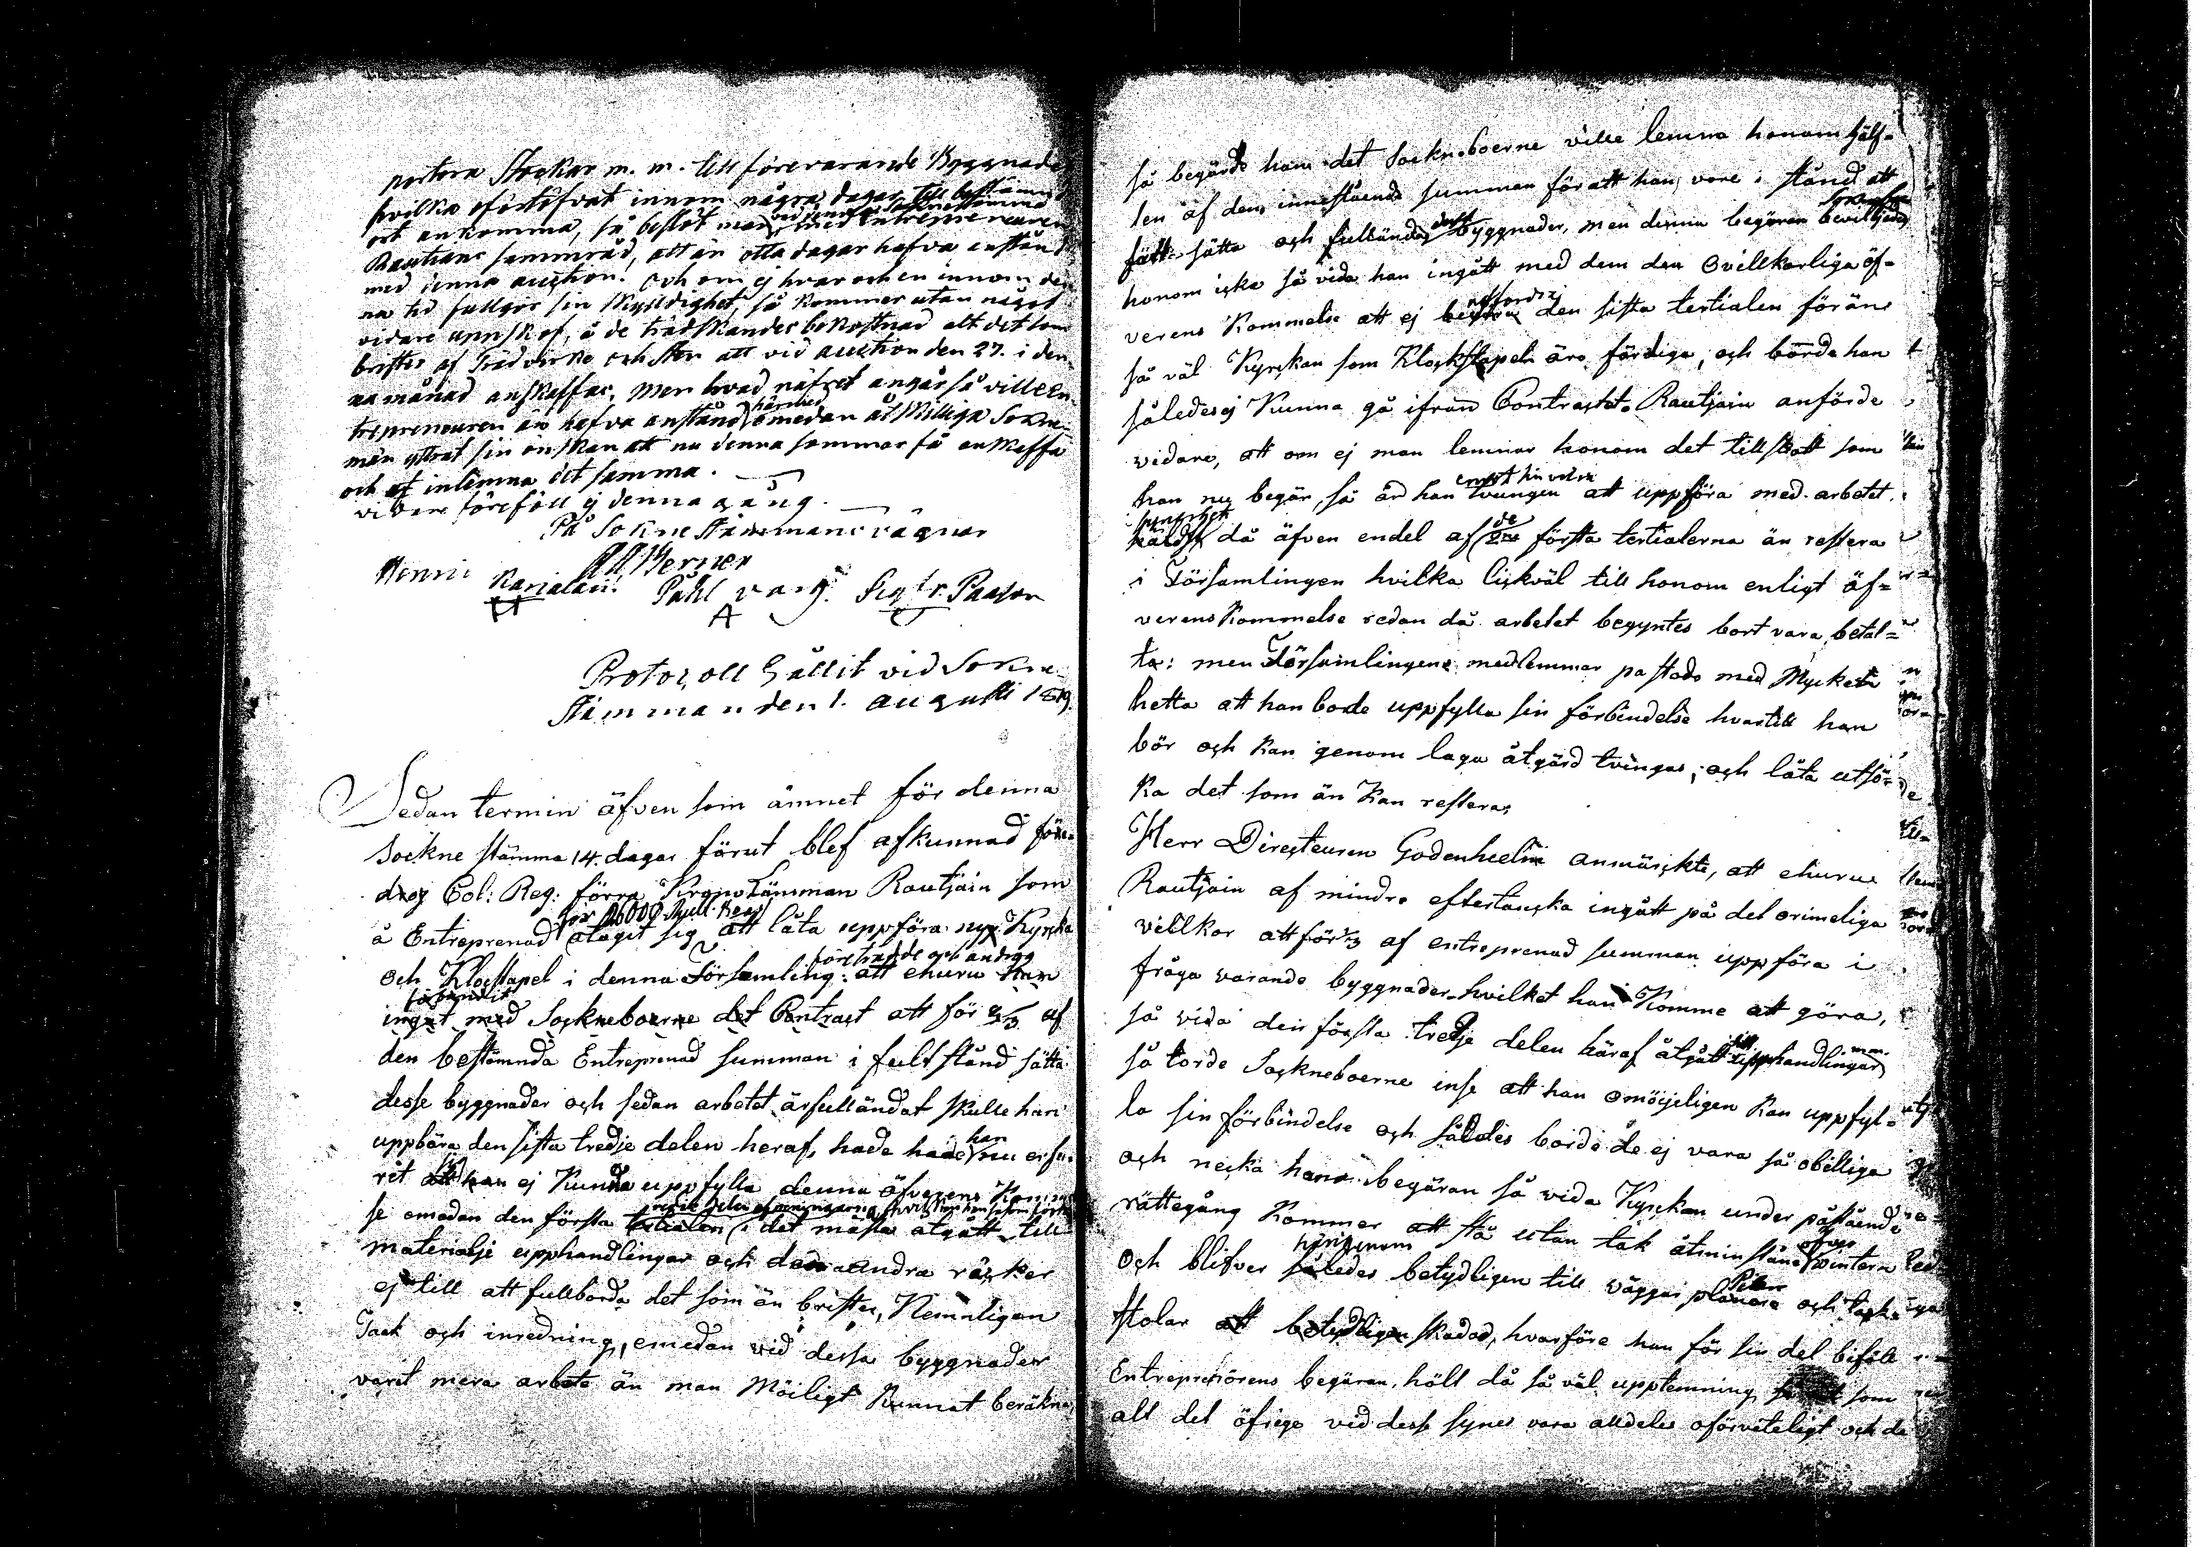 portera Stockar m. m. till förevarande Byggnader
hvilka oförtöfvat innom några dagar till bestämd
ort ankomma, så beslöt man med Entrepreneuren
Rautjains samråd, att än otta dagar hafva anstånd
med denna auction! och om ej hvar och en innom den
na tid fullgör sin skyldighet, så kommer utan något
vidare uppskof, å de trädskandes bekostnad alt det som
brister af Trädvirke och sten att vid auction den 27. i den
na månad anskaffas, men hvad näfret angår så ville En
trepreneuren än hafva anstånd härmed emedan åtskilliga Sokne
män yttrat sin önskan att nu denna sommar få anskaffa
och inlemna det samma.
vidare föreföll ej denna gång.
På Sokne Stämmans vägnar
Henric Karialain! Påhl Sigfr. Paason
Protocoll hållit vid Sokne
Stämman den 1. augusti 1819.
Sedan termin äfven som ämnet för denna
Sockne stämma 14. dagar förut blef afkunnad före
drog Col: Reg: förra Krono Länsman Rautjain som
å Entreprenad för 26000 Rub. åtagit sig att låta uppföra ny Kyrcka
och Klocstapel i denna Församling: att ehuru han
förbundit
ingåt med Sockneboerne det Contract att för 2/3 af
den bestämnda Entreprenad summan i fult stånd sätta
desse byggnader och sedan arbetet är fulländat skulle han
uppbära den sista tredje delen heraf, hade han nu erfa-
rit att han ej Kunna uppfylla denna äfverens Kommel
se emedan den första tertialen i det mästa åtgått till
materialje upphandlingar och den andra räcker
ej till att fullborda det som än brister, Nemnligen
Taek och inredning, emedan vid dessa byggnader
varit mera arbete än man Möiligt Kunnat beräkna,
så begärde han det Sockneboerne ville lemna honom hälf-
ten af den innestående summan för att han vore i stånd att
fått sätta och fullända byggnader, men denna begäran beviljades
honom icke så vida han ingått med dem den ovillkorliga öf-
verens Kommelse att ej den sista tertialen förän
så väl Kyrckan som Klockstapeln äro färdiga, och borde han
således ej Kunna gå ifrån Contractet. Rautjain anförde
vidare, att om ej man lemnar honom det tillskott som
han nu begär, så är han tvungen att uppföra med arbetet
då äfven endel af de första tertialerna än restera
i Församlingen hvilka likväl till honom enligt äf-
verens Kommelse redan då arbetet begyntes bort vara betal-
ta: men Församlingens medlemmar påstodo med Mycken
hetta att han borde uppfylla sin förbindelse hvartill han
bör och kan genom laga åtgärd tvingas, och låta utsö-
ka det som än Kan restera,
Herr Directeuren Godenhielm anmärckte, att ehuru
Rautjain af mindre eftertancka ingått på det orimeliga
villkor att för 2/3 af entreprenad summan uppföra i
fråga varande byggnader hvilket han Komme att göra,
så vida den första tredje delen häraf åtgått till upphandlingar
så torde Sockneboerne inse att han omöijeligen Kan uppfyl-
la sin förbindelse och således borde de ej vara så obilliga
och necka hans begäran så vida Kyrckan under påstående
rättegång Kommer att stå utan tak åtminstone öfver vintern
härigenom
och blifver således betydligen till väggar och tack-
stolar skadad, hvarföre han för sin del biföll
Entreprenörens begäran, hölt då så väl upptemning som
alt det öfriga vid desse synes vara alldeles oförviteligt och de